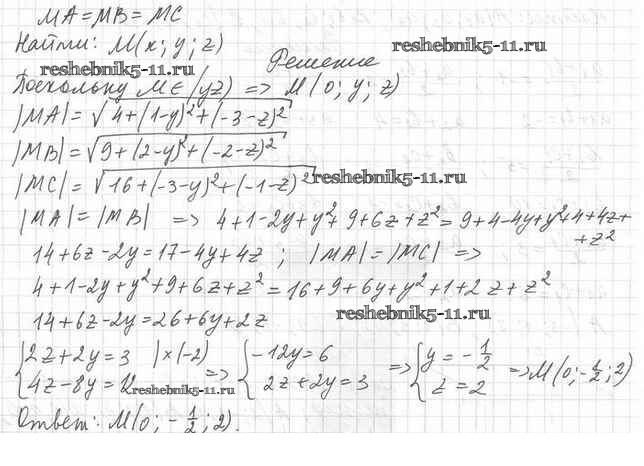 MA = MB = MC
Найти: M(x; y; z)
reshebnik5-11.ru
Решение
reshebnik5-11.ru
Поскольку M∈(yz) => M(0; y; z)
|MA| = √4+(1-y)²+(-3-z)²
|MB| = √9+(2-y)²+(-2-z)²
|MC| = √16+(-3-y)²+(-1-z)²
reshebnik5-11.ru
|MA| = |MB| => 4+1-2y+y²+9+6z+z² = 9+4-4y+y²+4+4z+
+z²
14+6z-2y = 17-4y+4z ; |MA| = |MC| =>
4+1-2y+y²+9+6z+z² = 16+9+6y+y²+1+2z+z²
14+6z-2y = 26+6y+2z
reshebnik5-11.ru
{2z+2y=3 |×(-2) => {-12y=6 => {y=-1/2 => M(0; -1/2; 2)
4z-8y=12 2z+2y=3 z=2
reshebnik5-11.ru
Ответ: M(0; -1/2; 2).